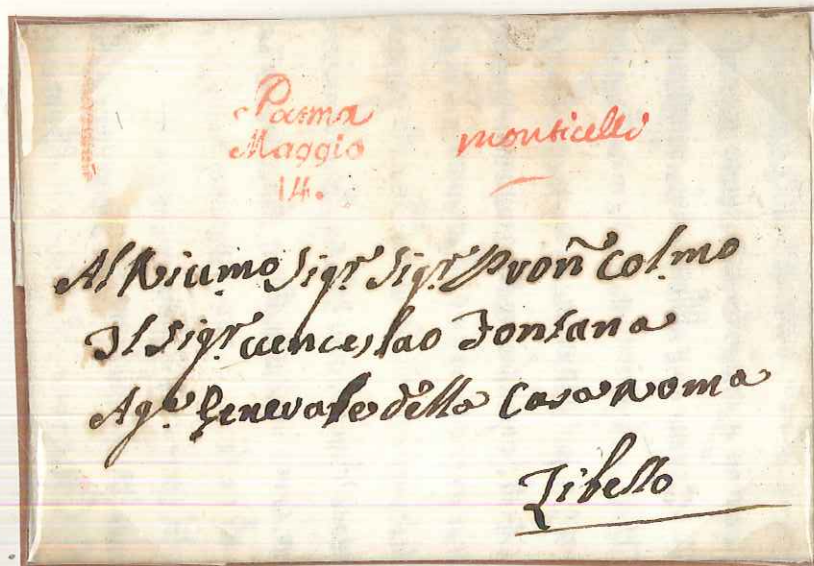 Parma
Maggio
14.
monticelli
Al Sigr. Sigr. Pron̄ Col.mo
Il Sigr. Venceslao Fontana
Ag.e Generale della Casa Roma
Zibello